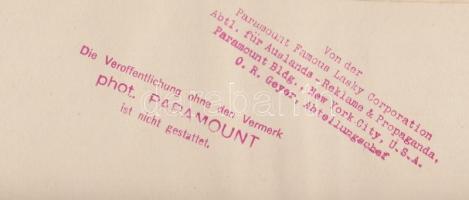 Die Veröffentlichung ohne den Vermerk
phot. PARAMOUNT
ist nicht gestattet.
Von der
Paramount Famous Lasky Corporation
Abtl. für Auslands-Reklame & Propaganda,
Paramount Bldg., New York City, U.S.A.
O. R. Geyer, Abteilungschef